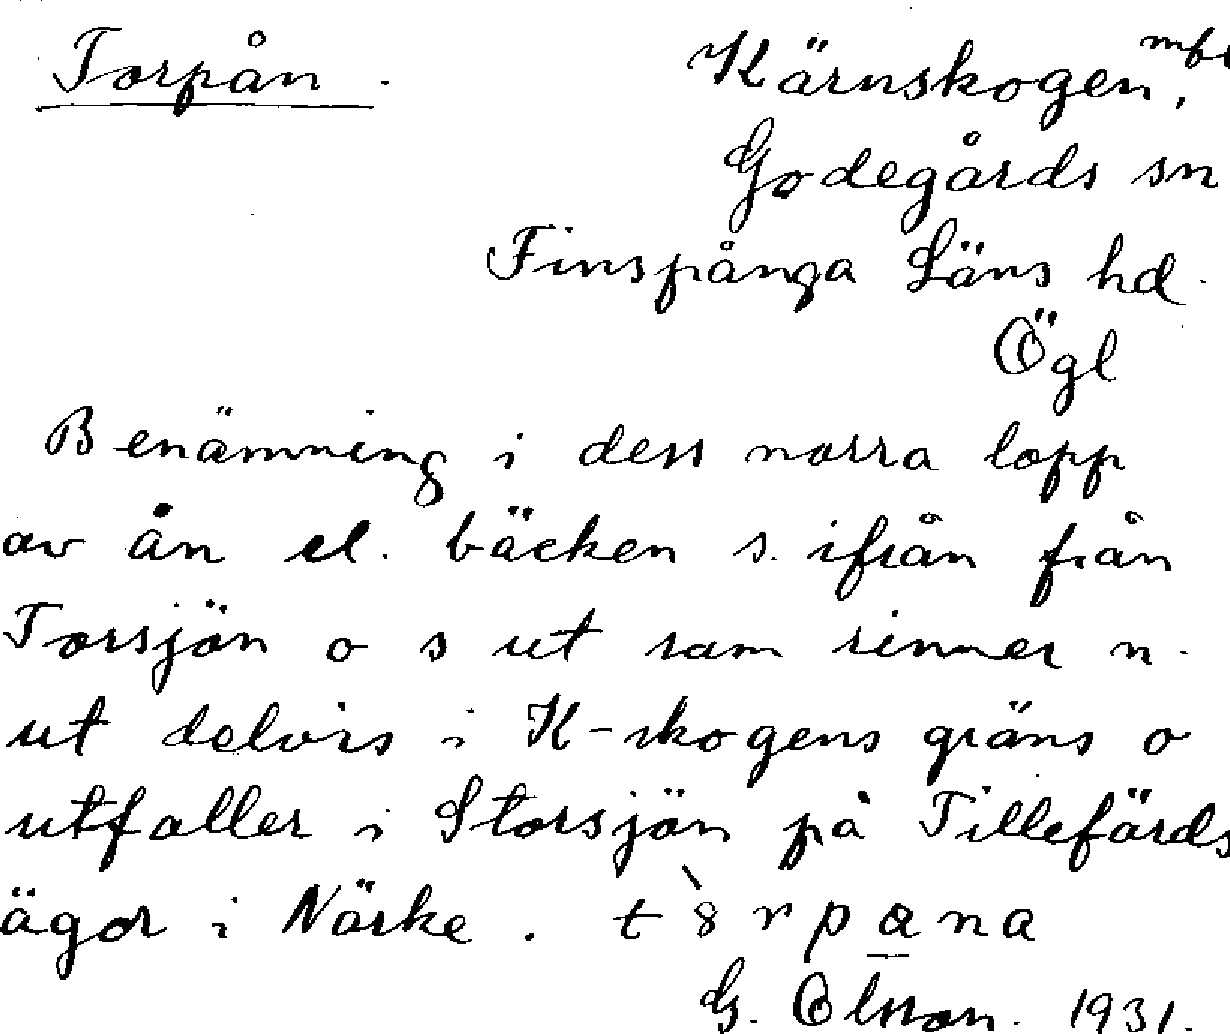 Torpån. Kärnskogen, mbr
Godegårds sn
Finspånga Läns hd.
Ögl
Benämning i dess norra lopp
av ån el. bäcken s. ifrån från
Torsjön o s ut som rinner n.
ut delvis i K-skogens gräns o
utfaller i Storsjön på Tillefärds
ägor i Närke. t rpana
G. Olsson. 1931.